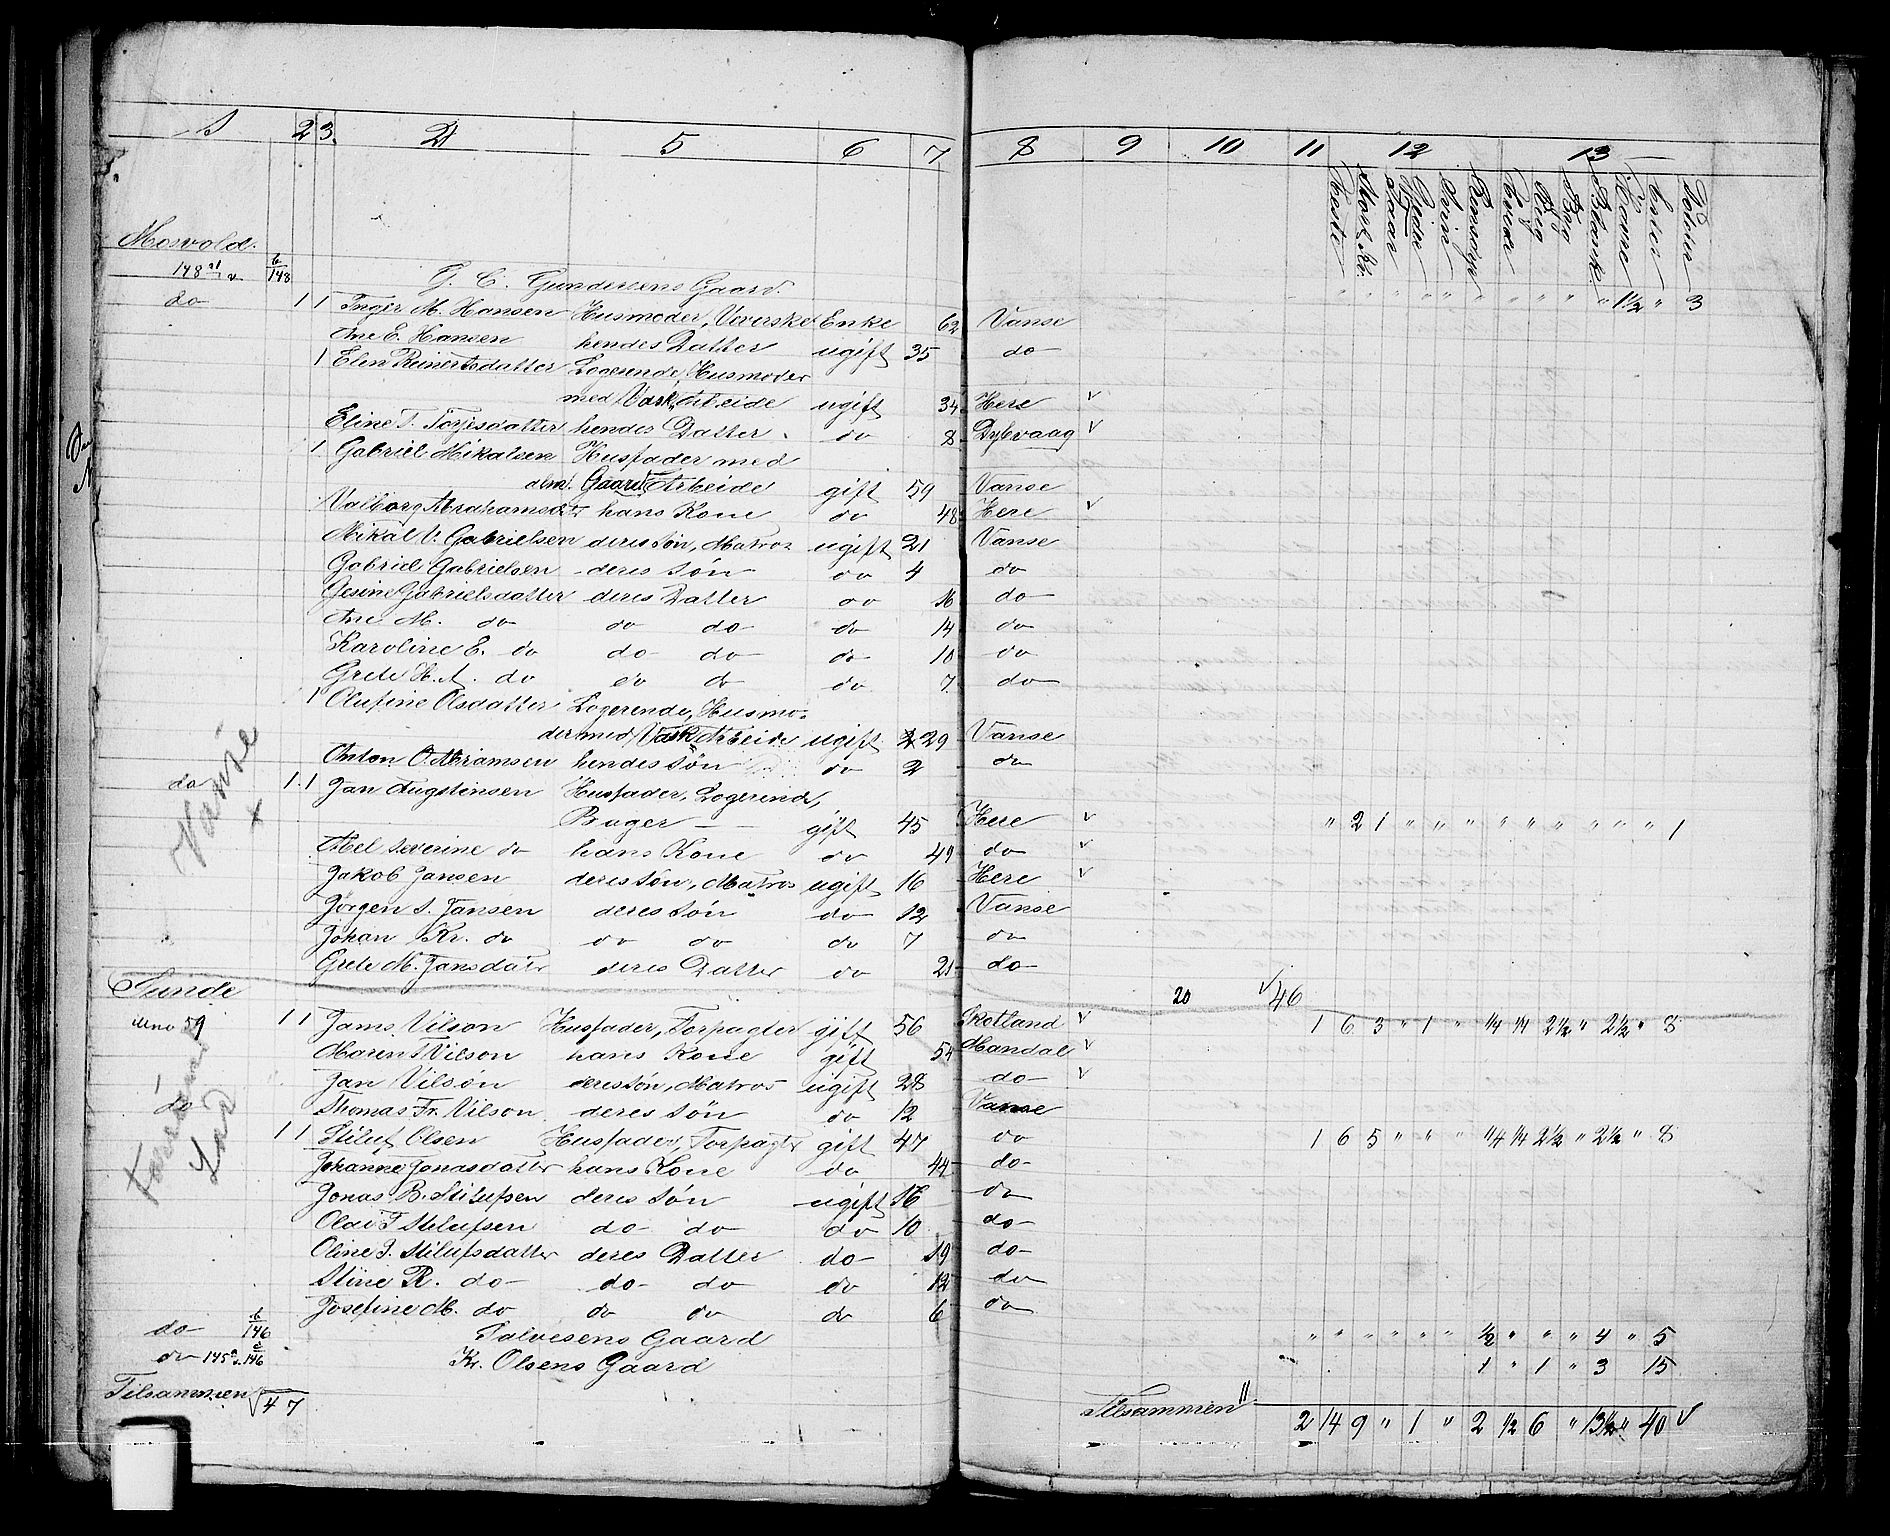 1 2 3. 4 5 6 7 8 9 10 11 12 13
Heste Stort Kv. Faar Gjeder Svin Rensdyr Hvede Rug Byg Blandk. Havre Erter Poteter
Mosvold.
148 b/148 G. C. Gundersens Gaard.
do 1 1 Inger M. Hansen Husmoder, Væverske Enke 62 Vanse " " " " " " " " " " 1½ " 3
Ane E. Hansen hendes Datter ugift 35 do
1 Elen Reinertsdatter Logerende, Husmoder
med Vask Arbeide ugift 34 Here v
Eline T. Torjesdatter hendes Datter do 8 Dybvaag v
1 Gabriel Mikalsen Husfader med
alm. Gaards Arbeide gift 59 Vanse
Valborg Abrahamsdtr hans Kone do 48 Here v
Mikal V. Gabrielsen deres Søn, Matros ugift 21 Vanse
Gabriel Gabrielsen deres Søn do 4 do
Gesine Gabrielsdatter deres Datter do 16 do
Ane M. do do do do 14 do
Karoline E. do do do do 10 do
Grete H. A. do do do do 7 do
1 Olufine Olsdatter Logerende, Husmo-
der med Vask Arbeide ugift 29 Vanse
Anton O. Abramsen hendes Søn do 2 do
do 1 1 Jan Augstinsen Husfader, Logerende,
Bager gift 45 Here v " 2 1 " " " " " " " " " 1
Abel Severine do hans Kone do 49 do v
Jakob Jansen deres Søn, Matros ugift 16 Here v
Jørgen S. Jansen deres Søn do 12 Vanse
Johan Kr. do do do do 7 do
Grete M. Jansdatr deres Datter do 21 do
Vanse x
Sunde 20 v 46
Uno 59 1 1 Jams Vilson Husfader, Forpagter gift 56 Skotland v 1 6 3 " 1 " ¼ ¼ 2½ " 2½ " 8
Maren T Vilson hans Kone gift 54 Mandal v
Jan Vilson deres Søn, Matros ugift 28 do v
do Thomas Fr. Vilson deres Søn do 12 Vanse
1 1 Stiluf Olsen Husfader, Forpagtr gift 47 do 1 6 5 " " " ¼ ¼ 2½ " 2½ " 8
Johanne Jonasdatter hans Kone do 44 do
Jonas B. Stilufsen deres Søn ugift 16 do
Olai T Stilufsen do do do 10 do
Oline P. Stilufsdatter deres Datter do 19 do
Stine R. do do do do 12 do
Josefine M. do do do do 6 do
do b/146 Salvesens Gaard " " " " " " ½ " " " 4 " 5
do 145 c/146 Kr. Olsens Gaard 1 " 1 " 3 15
Tilsammen √47 Tilsammen 2 14 9 " 1 " 2 ½ 6 " 13½ " 40 v